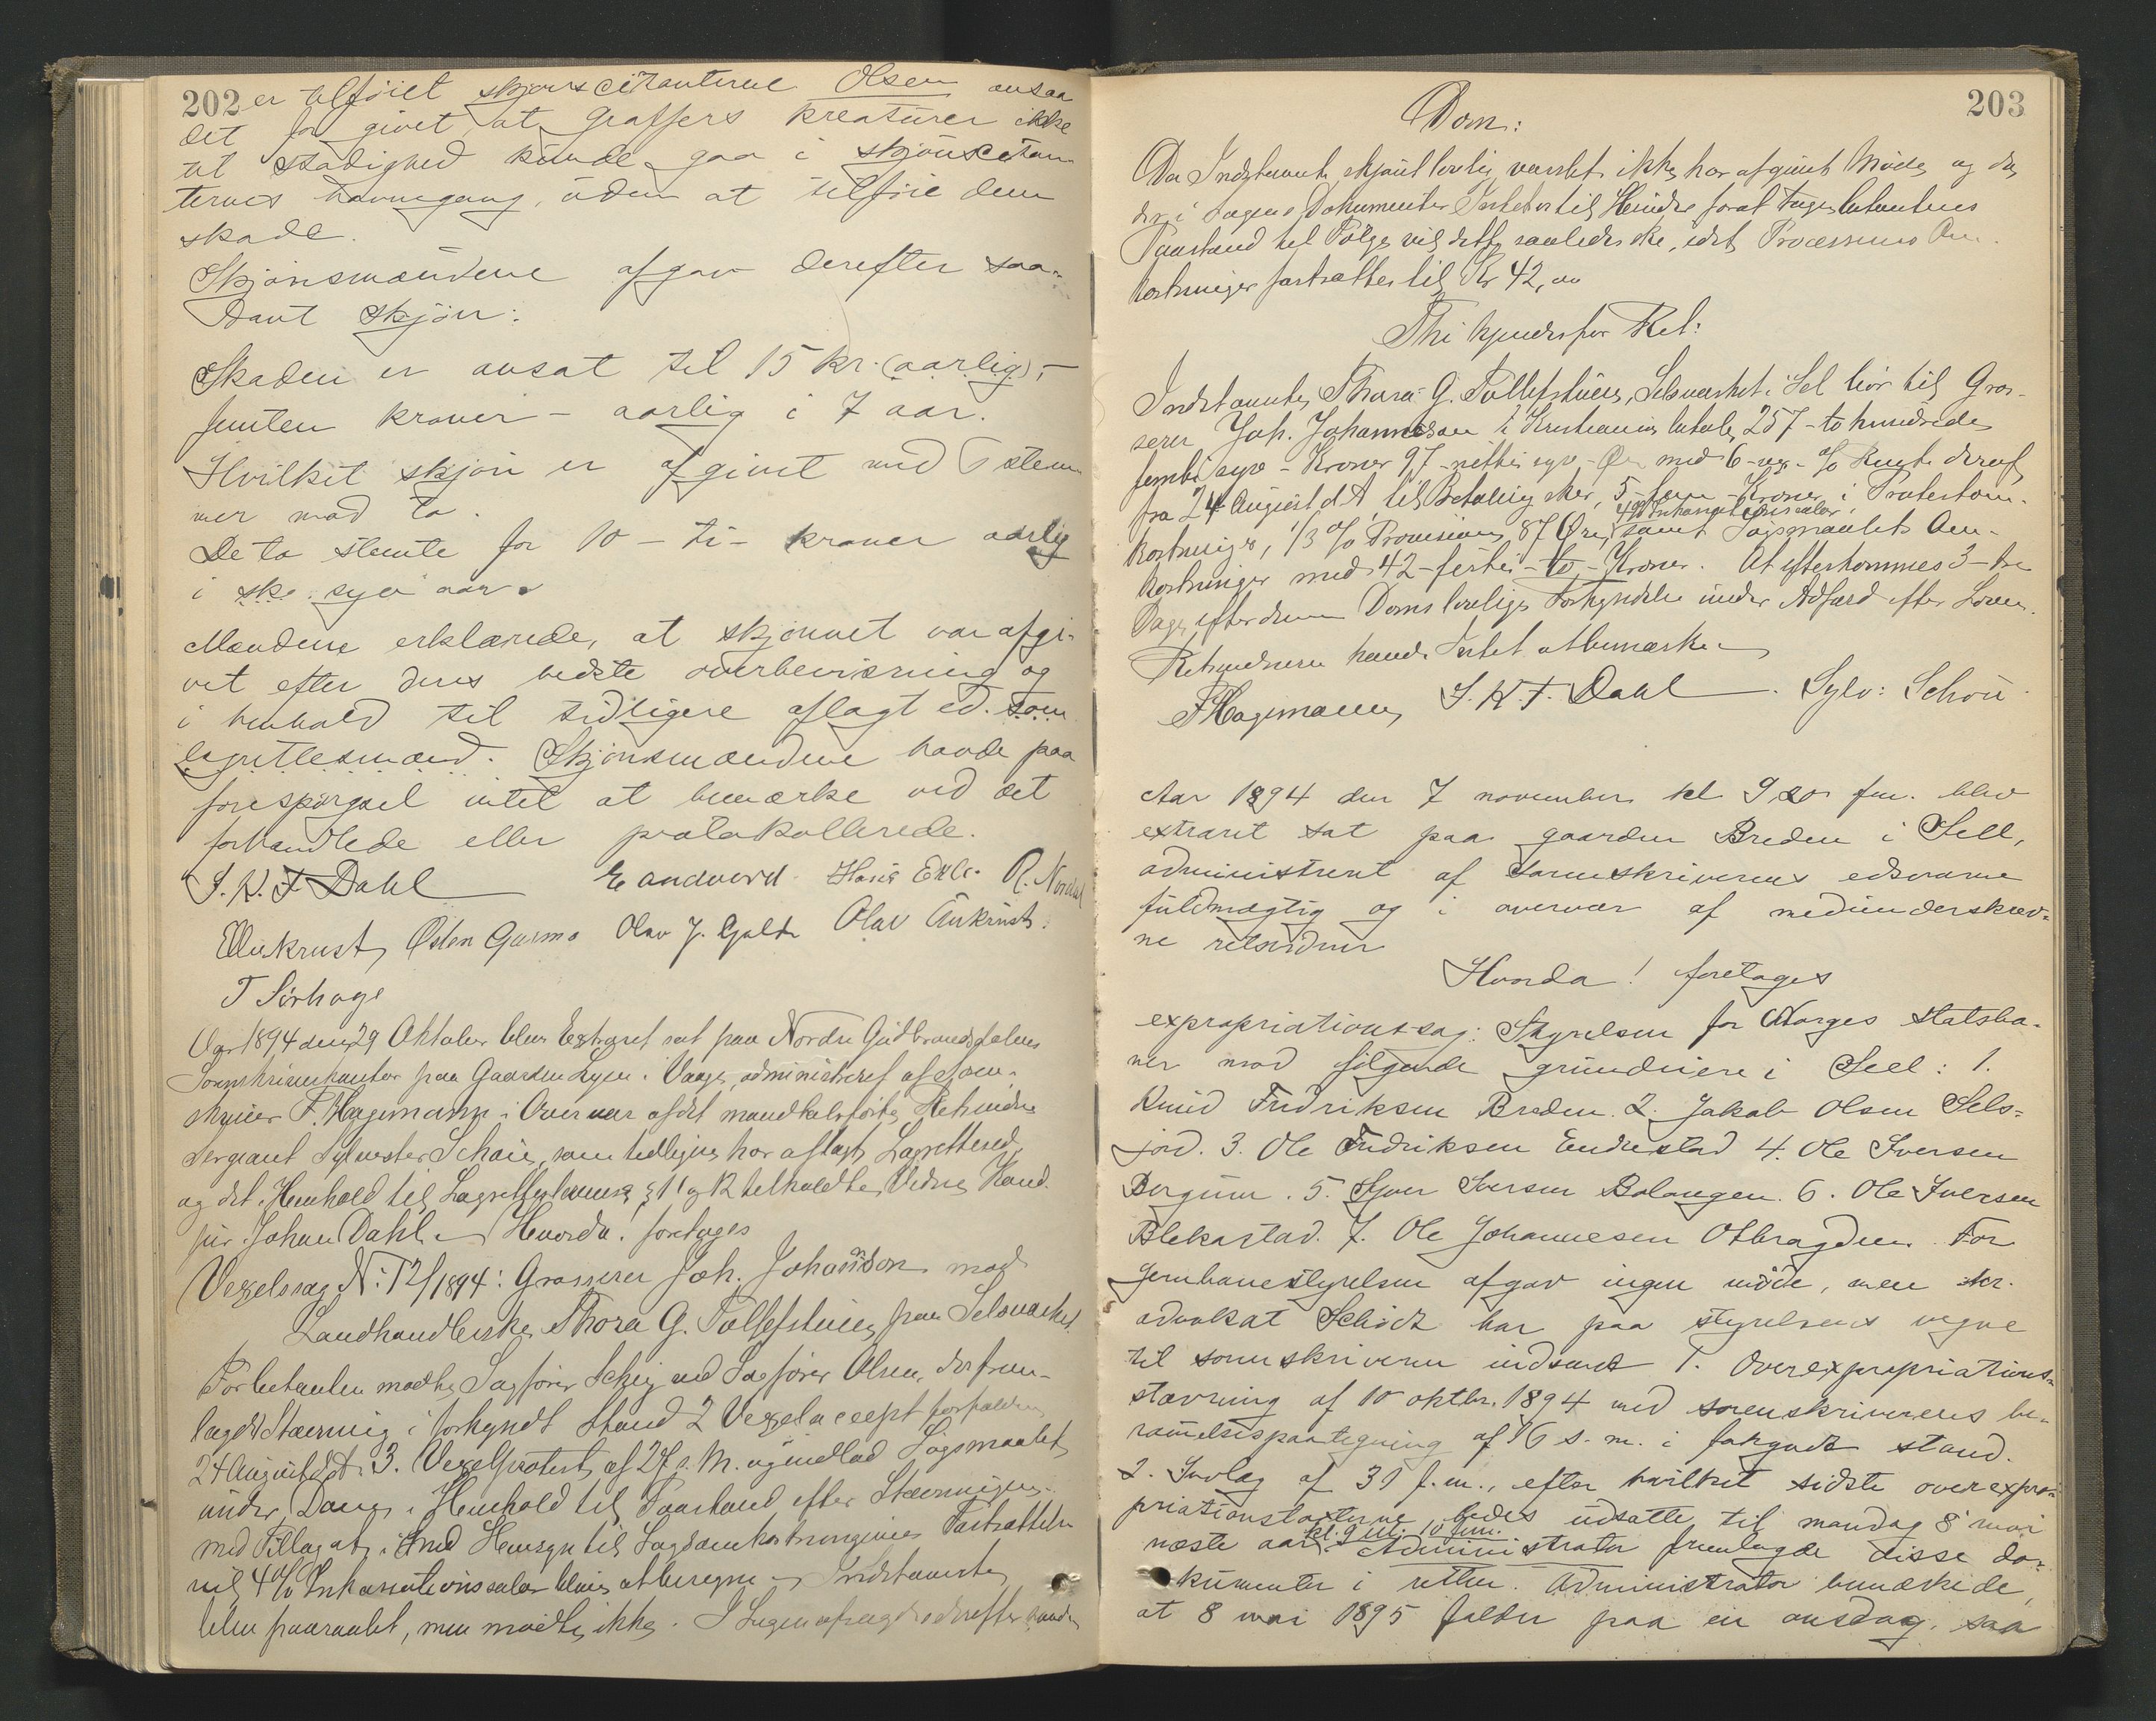 202 er tilføiet skjønscitanterne Olsen ansaa
det for givet, at Graffers kreaturer ikke
til stadighed kunde gaa i skjønscitan
ternes havnegang, uden at tilføie dem
skade.
Skjønsmændene afgav derefter saa-
dant skjøn:
Skaden er ansat til 15 kr. (aarlig) -
femten kroner - aarlig i 7 aar.
Hvilket skjøn er afgivet med stem
mer mod to.
De to stemte for 10 - ti - kroner aarlig
i syv aar.
Mændene erklærede, at skjønnet var afgi-
vet efter deres bedste overbevisning og
i henhold til tidligere aflagt ed. som
lagrettesmænd. Skjønsmændene havde paa
forespørgsel intet at bemærke ved det
forhandlede eller protokollerede.
S. K. F. Dahl E Randverd Hans R. Nordal
Østen Garmo Olav J. Galde Olav Aukrust.
T Sørhage
Aar 1894 den 29 Oktober blev Extraret sat paa Nordre Gudbrandsdalens
Sorenskriverkontor paa Gaarden i Vaage, administreret af Soren-
skriver F. Hagemann i Overvær af det mandtalsførte Retsvidne
Sergeant Sylvester Schou, som tidligere har aflagt Lagretteed
og det i Henhold til Lagretteslovens § 11 og 12 tilkaldte Vidne Kand.
jur. Johan Dahl. Hvorda! foretoges
Vexelssag N: 12/1894: Grosserer Joh. Johannson mod
Landhandlerske Thora G. Tollefstuen paa Selsværket.
For Citanten mødte Sagfører Schey ved Sagfører Olsen, der frem-
lagde Stævning i forkyndt Stand 2 Vexelaccept forfalden
24 August d. A. 3. Vexelprotest af 27 s. M. og indlod Søgsmaalet
under Doms i Henhold til Paastand efter Stævningen
med Tillæg at, Hensyn til Sagsomkostningernes Fastsættelse
vil 4% Inkassationssalær blive at beregne. Indstævnte
blev paaraabt, men mødte ikke. I Sagen afsagdes derefter saadan
203
Dom:
Da Indstævnte skjønt lovlig varslet ikke har afgivet Møde, og da
der i Sagens Dokumenter Intet er til Hinder for at tage Citantens
Paastand til Følge vil dette saaledes ske, idet Processens Om-
kostninger fastsættes til Kr 42,00
Thi kjendes for Ret:
Indstævnte, Thora G. Tollefstuen, Selsværket i Sel bør til Gros-
serer Joh. Johannson i Kristiania betale 257 - to hundrede
femti syv - Kroner 97 - nitti syv - Øre med 6 - sex - % Rente deraf
fra 24 August d A til Betaling sker, 5 - fem - Kroner i Protestom-
4% Inkassationssalær,
kostninger, 1/3 % Provision, 87 Øre, samt Søgsmaalets Om-
kostninger med 42 - førti - to - Kroner. At efterkommes 3 - tre
Dage efter denne Doms lovlige Forkyndelse under Adfærd efter Loven.
Retsvidnerne havde Intet at bemærke.
F Hagemann S. K. F. Dahl Sylv: Schou
Aar 1894 den 7 november kl 9,20 fm. blev
extraret sat paa gaarden Breden i Sell,
administreret af Sorenskriverens edsvorne
fuldmægtig og i overvær af medunderskrev-
ne retsvidner
Hvorda! foretoges
expropriationssag: Styrelsen for Norges statsba-
ner mod følgende grundeiere i Sell: 1.
Knud Fredriksen Breden. 2. Jakob Olsen Sels-
jord. 3. Ole Fredriksen Endrestad 4. Ole Iversen
Bergum. 5. Syver Iversen Bolongen. 6. Ole Iversen
Blekastad. 7. Ole Johannesen Otbragden. For
Jernbanestyrelsen afgav ingen møde, men hr.
advokat Schiøtz har paa styrelsens vegne
til sorenskriveren indsendt 1. Overexpropriations-
stævning af 10 oktbr. 1894 med sorenskriverens be-
rammelsespaategning af 16 s. m. i forkyndt stand.
2. Indlæg af 31 f. m., efter hvilket sidste overexpro-
priationstaxterne bedes udsatte til mandag 8 mai
kl. 9 til 10 fm.
næste aar. Administrator fremlagde disse do-
kumenter i retten. Administrator bemærkede,
at 8 mai 1895 falder paa en onsdag, saa